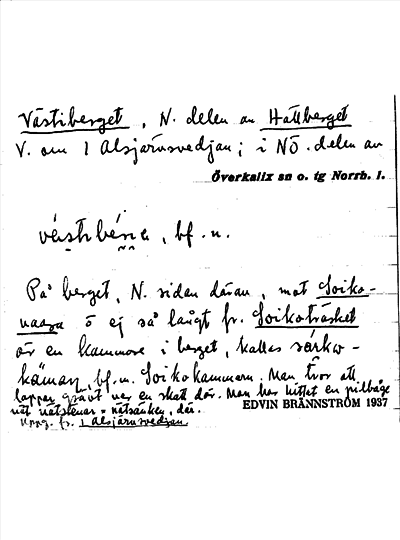 Västiberget, N. delen av Hattberget
V. om 1 Alsjärvsvedjan; i NÖ. delen av
Överkalix sn o. tg Norrb. l.
bf. n.
På berget, N. sidan därav, mot Soiko-
vaara o ej så långt fr. Soikoträsket
är en kammare i berget, kallas
bf. n. Soikokammarn. Man tror att
lappar grävt ner en skatt där. Man har hittat en pilbåge
när nätstenar = nätsänken, där.
EDVIN BRÄNNSTRÖM 1937
Uppg. fr. 1 Alsjärvsvedjan.